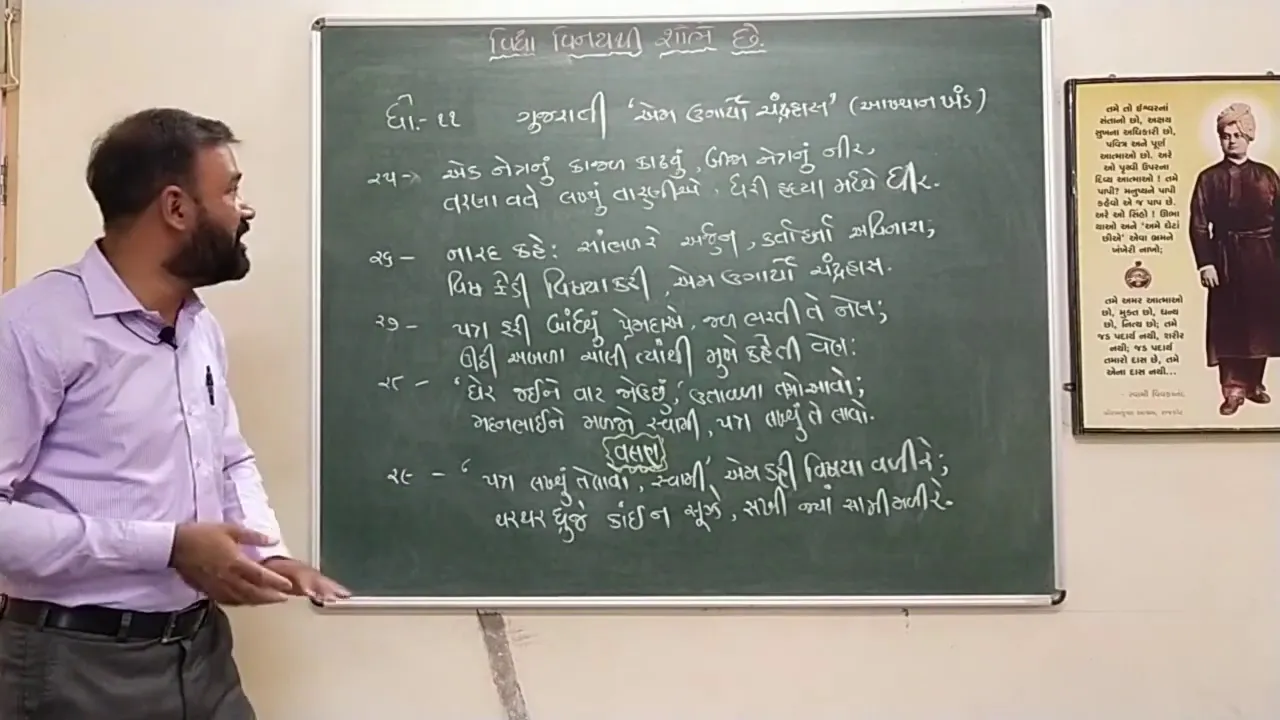 વિદ્યા વિનયથી શોભે છે.
ધો.- ૧૧ ગુજરાતી 'એમ ઉગાર્યો ચંદ્રહાસ' (આખ્યાન ખંડ)
૨૫- એક નેત્રનું કાજળ કાઢવું, બીજા નેત્રનું નીર,
તરણા વતે લખ્યું તારુણીએ, ધરી હૃદયા મધ્યે ધીર.
૨૬ - નારદ કહે: સાંભળ રે અર્જુન, કર્તાહર્તા અવિનાશ;
વિષ ફેડી વિષયા કરી, એમ ઉગાર્યો ચંદ્રહાસ.
૨૭ - પત્ર ફરી બાંધ્યું પ્રેમદાએ, જળ ભરતી તે નેણ;
ઊઠી અબળા ચાલી ત્યાંથી મુખે કહેતી વેણ:
૨૮ - 'ઘેર જઈને વાટ જોઉં છું,' ઉતાવળા તમો આવો;
મદનભાઈને મળજો સ્વામી, પત્ર લખ્યું તે લાવો.
વલણ
૨૯ - 'પત્ર લખ્યું તે લાવો, સ્વામી' એમ કહી વિષયા વળી રે;
થરથર ધ્રુજે કાંઈ ન સૂઝે, સખી જ્યાં સામી મળી રે.
તમે તો ઈશ્વરનાં
સંતાનો છો, અક્ષય
સુખના અધિકારી છો,
પવિત્ર અને પૂર્ણ
આત્માઓ છો. અરે
ઓ પૃથ્વી ઉપરના
દિવ્ય આત્માઓ ! તમે
પાપી? મનુષ્યને પાપી
કહેવો એ જ પાપ છે.
અરે ઓ સિંહો ! ઊભા
થાઓ અને 'અમે ઘેટાં
છીએ' એવા ભ્રમને
ખંખેરી નાખો;
તમે અમર આત્માઓ
છો, મુક્ત છો, ધન્ય
છો, નિત્ય છો; તમે
જડ પદાર્થ નથી, શરીર
નથી; જડ પદાર્થ
તમારો દાસ છે, તમે
એના દાસ નથી...
- સ્વામી વિવેકાનંદ